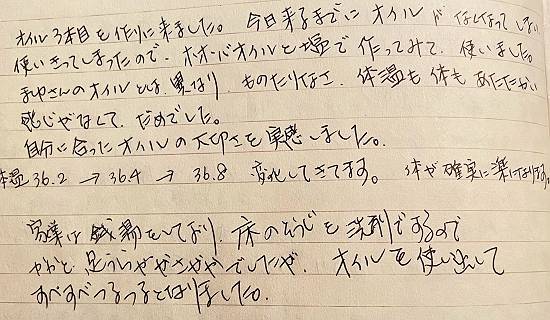 オイル3本目を作りに来ました。今日来るまでに オイルがなくなってしまい
使いきってしまったので、ホホバオイルと塩で作ってみて、使いました。
まやさんのオイルとは異なり、ものたりなさ、体温も体もあたたかい
感じがなくて、だめでした。
自分に合ったオイルの大切さを実感しました。
体温36.2 → 36.4 → 36.8 変化してきてます。 体が確実に楽になります。
家業は銭湯をしており、床のそうじを洗剤でするので
かかと、足うらがガサガサでしたが、オイルを使い出して
すべすべつるつるとなりました。